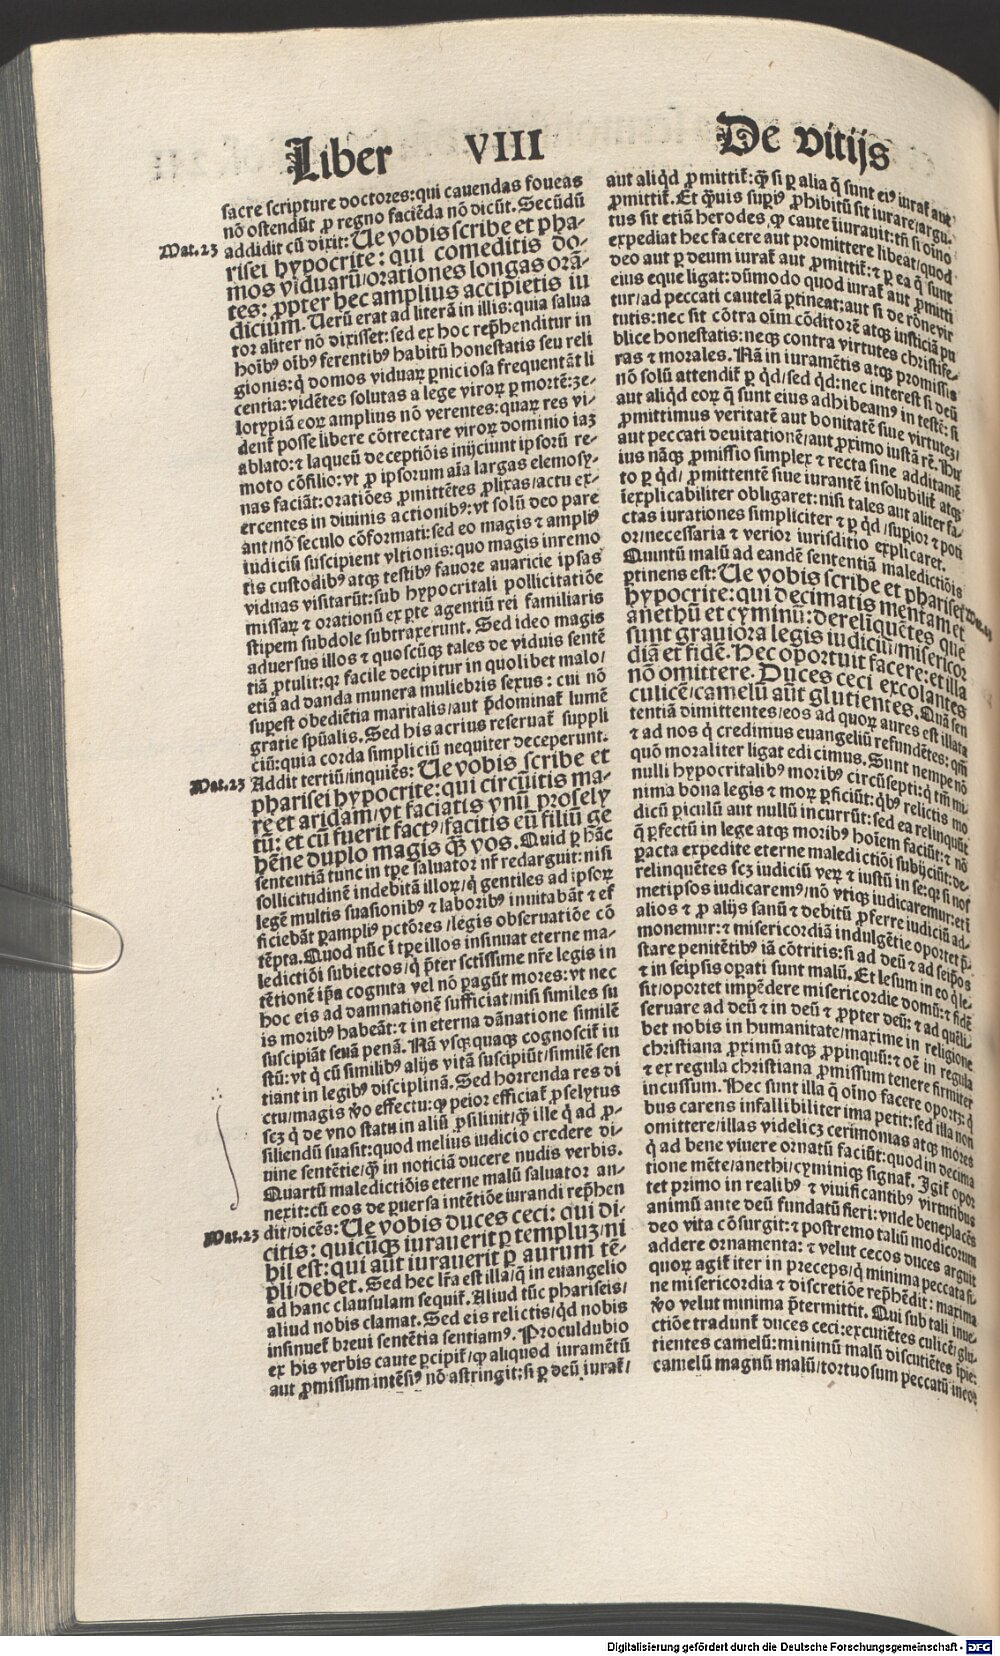 Liber VIII De vitijs
sacre scripture doctores: qui cauendas foueas
nō ostendūt ꝑ regno faciēda nō dicūt. Secūdū
Mat.23 addidit cū dixit: Ue vobis scribe et pha-
risei hypocrite: qui comeditis do-
mos viduarū/orationes longas orā-
tes: ꝓpter hec amplius accipietis iu
dicium. Uerū erat ad literā in illis: quia salua
tor aliter nō dixisset: sed ex hoc rep̄henditur in
hoībꝰ oībꝰ ferentibꝰ habitū honestatis seu reli
gionis: q̄ domos viduaꝝ ꝑniciosa frequentāt li
centia: vidētes solutas a lege viroꝝ ꝑ mortē: ze-
lotypiā eoꝝ amplius nō verentes: quaꝝ res vi-
dent̄ posse libere cōtrectare viroꝝ dominio iaꝫ
ablato: ⁊ laqueū deceptiōis inijciunt ipsorū re-
moto cōsilio: vt ꝓ ipsorum aīa largas elemosy-
nas faciāt: oratiōes ꝓmittētes ꝓlixas/actu ex-
ercentes in diuinis actionibꝰ: vt solū deo pare
ant/nō seculo cōformati: sed eo magis ⁊ ampliꝰ
iudiciū suscipient vltionis: quo magis in remo
tis custodibꝰ atqꝫ testibꝰ fauore auaricie ipsas
viduas visitarūt: sub hypocritali pollicitatiōe
missaꝝ ⁊ orationū ex ꝑte agentiū rei familiaris
stipem subdole subtraxerunt. Sed ideo magis
aduersus illos ⁊ quoscūqꝫ tales de viduis sentē
tiā ꝓtulit: qꝛ facile decipitur in quolibet malo/
etiā ad danda munera muliebris sexus: cui nō
suꝑest obediētia maritalis/aut p̄dominat̄ lumē
gratie spūalis. Sed his acrius reseruat̄ suppli
ciū: quia corda simpliciū nequiter deceperunt.
Mat.23 Addit tertiū/inquiēs: Ue vobis scribe et
pharisei hypocrite: qui circūitis ma-
re et aridam/vt faciatis vnū prosely
tū: et cū fuerit factꝰ/facitis eū filiū ge
hēne duplo magis q̄ꝫ vos. Quid ꝑ hāc
sententiā tunc in tp̄e saluator nr̄ redarguit: nisi
sollicitudinē indebitā illoꝝ/q̄ gentiles ad ipsoꝝ
legē multis suasionibꝰ ⁊ laboribꝰ inuitabāt ⁊ ef
ficiebāt ꝑampliꝰ pctōres/legis obseruatiōe cō
tēpta. Quod nūc ī tp̄e illos insinuat eterne ma-
ledictiōi subiectos/q̄ p̄ter sctissime nr̄e legis in
tētionē ip̄a cognita vel nō ꝑagūt mores: vt nec
hoc eis ad damnationē sufficiat/nisi similes su
is moribꝰ habeāt: ⁊ in eterna dānatione similē
suscipiāt seuā penā. Nā vsqꝫquaqꝫ cognoscit̄ iu
stū: vt q̄ cū similibꝰ alijs vitā suscipiūt/similē sen
tiant in legibꝰ disciplinā. Sed horrenda res di
ctu/magis v̄o effectu: ꝙ peior efficiat̄ ꝓselytus
seꝫ q̄ de vno statu in aliū ꝓsiliuit/q̄ꝫ ille q̄ ad ꝓ-
siliendū suasit: quod melius iudicio credere di-
uine sentētie/q̄ꝫ in noticiā ducere nudis verbis.
Quartū maledictiōis eterne malū saluator an-
nexit: cū eos de ꝑuersa intētiōe iurandi rep̄hen
Mat.23 dit/dicēs: Ue vobis duces ceci: qui di-
citis: quicūqꝫ iurauerit ꝑ templuꝫ/ni
hil est: qui aūt iurauerit ꝑ aurum tē-
pli/debet. Sed hec lr̄a est illa/q̄ in euangelio
ad hanc clausulam sequit̄. Aliud tūc phariseis/
aliud nobis clamat. Sed eis relictis/qd nobis
insinuet̄ breui sentētia sentiamꝰ. Proculdubio
ex his verbis caute ꝑcipit̄/ꝙ aliquod iuramētū
aut ꝓmissum intēsiꝰ nō astringit: si ꝑ deū iurat̄/
aut aliqd ꝓmittit̄: q̄ꝫ si ꝑ alia q̄ sunt eiꝰ iurat̄ aut
ꝓmittit̄. Et q̄ꝫuis suꝑiꝰ ꝓhibitū sit iurare/argu-
tus sit etiā herodes, ꝙ caute iurauit: tn̄ si oīno
expediat hec facere aut promittere libeat/quod
deo aut ꝑ deum iurat̄ aut ꝓmittit̄: ⁊ ꝑ ea q̄ sunt
eius eque ligat: dūmodo quod iurat̄ aut ꝓmitti
tur/ad peccati cautelā ꝑtineat: aut si de rōne vir
tutis: nec sit cōtra oīm cōditorē atqꝫ iusticiā pu
blice honestatis: neqꝫ contra virtutes christife-
ras ⁊ morales. Nā in iuramētis atqꝫ promissis
nō solū attendit̄ ꝑ qd/sed qd: nec interest si deū
aut aliqd eoꝝ q̄ sunt eius adhibeamꝰ in testē: si
ꝓmittimus veritatē aut bonitatē siue virtutes/
aut peccati deuitationē/aut ꝓximo iustā rē.
ius nāqꝫ ꝓmissio simplex ⁊ recta sine additamē
to ꝑ qd/ꝓmittentē siue iurantē insolubilit̄ atqꝫ
īexplicabiliter obligaret: nisi tales aut aliter fa-
ctas iurationes simpliciter ⁊ ꝑ qd/suꝑior ⁊ poti
or/necessaria ⁊ verior iurisditio explicaret.
Quintū malū ad eandē sententiā maledictiōis
ꝑtinens est: Ue vobis scribe et pharisei Mat.23
hypocrite: qui decimatis mentam et
anethū et cyminū: dereliquētes que
sunt grauiora legis iudiciū/misericor
diā et fidē. Hec oportuit facere: et illa
nō omittere. Duces ceci excolantes
culicē/camelū aūt glutientes. Quā sen
tentiā dimittentes/eos ad quoꝝ aures est illata
⁊ ad nos q̄ credimus euangeliū refundētes: qm̄
quō moraliter ligat edicimus. Sunt nempe nō
nulli hypocritalibꝰ moribꝰ circūsepti: q̄ tm̄ mi-
nima bona legis ⁊ moꝝ ꝑficiūt: qbꝰ relictis mo
dicū ꝑiculū aut nullū incurrūt: sed ea relinquūt
q̄ ꝑfectū in lege atqꝫ moribꝰ hoīem faciūt: ⁊ nō
ꝑacta expedite eterne maledictiōi subijciūt: de-
relinquētes scꝫ iudiciū veꝝ ⁊ iustū in se: qꝛ si nos
metipsos iudicaremꝰ/nō vtiqꝫ iudicaremur: eti
alios ⁊ ꝓ alijs sanū ⁊ debitū ꝓferre iudiciū ad-
monemur: ⁊ misericordiā indulgētie oportet p̄-
stare penitētibꝰ iā cōtritis: si ad deū ⁊ ad seip̄os
⁊ in seipsis oꝑati sunt malū. Et lesum in eo q̄ le-
sit/oportet impēdere misericordie domū: ⁊ fidē
seruare ad deū ⁊ in deū ⁊ ꝓpter deū: ⁊ ad quēli-
bet nobis in humanitate/maxime in religione
christiana ꝓximū atqꝫ ꝓpinquū: ⁊ oē in regula
⁊ ex regula christiana ꝓmissum tenere firmiter
incussum. Hec sunt illa q̄ oīno facere oportꝫ: q̄
bus carens infallibiliter ima petit: sed illa non
omittere/illas videlicꝫ cerimonias atqꝫ mores
q̄ ad bene viuere ornatū faciūt: quod in decima
tione mēte/anethi/cyminiqꝫ signat̄. Igit̄ opor
tet primo in realibꝰ ⁊ viuificantibꝰ virtutibus
animū ante deū fundatū fieri: vnde beneplacēs
deo vita cōsurgit: ⁊ postremo taliū modicorum
addere ornamenta: ⁊ velut cecos duces arguit
quoꝝ agit̄ iter in preceps/q̄ minima peccata si-
ne misericordia ⁊ discretiōe rep̄hēdit: maxima
v̄o velut minima p̄termittit. Qui sub tali inue-
ctiōe tradunt̄ duces ceci: excutiētes culicē/glu-
tientes camelū: minimū malū discutiētes īpie:
camelū magnū malū/tortuosum peccatū
Digitalisierung gefördert durch die Deutsche Forschungsgemeinschaft - DFG